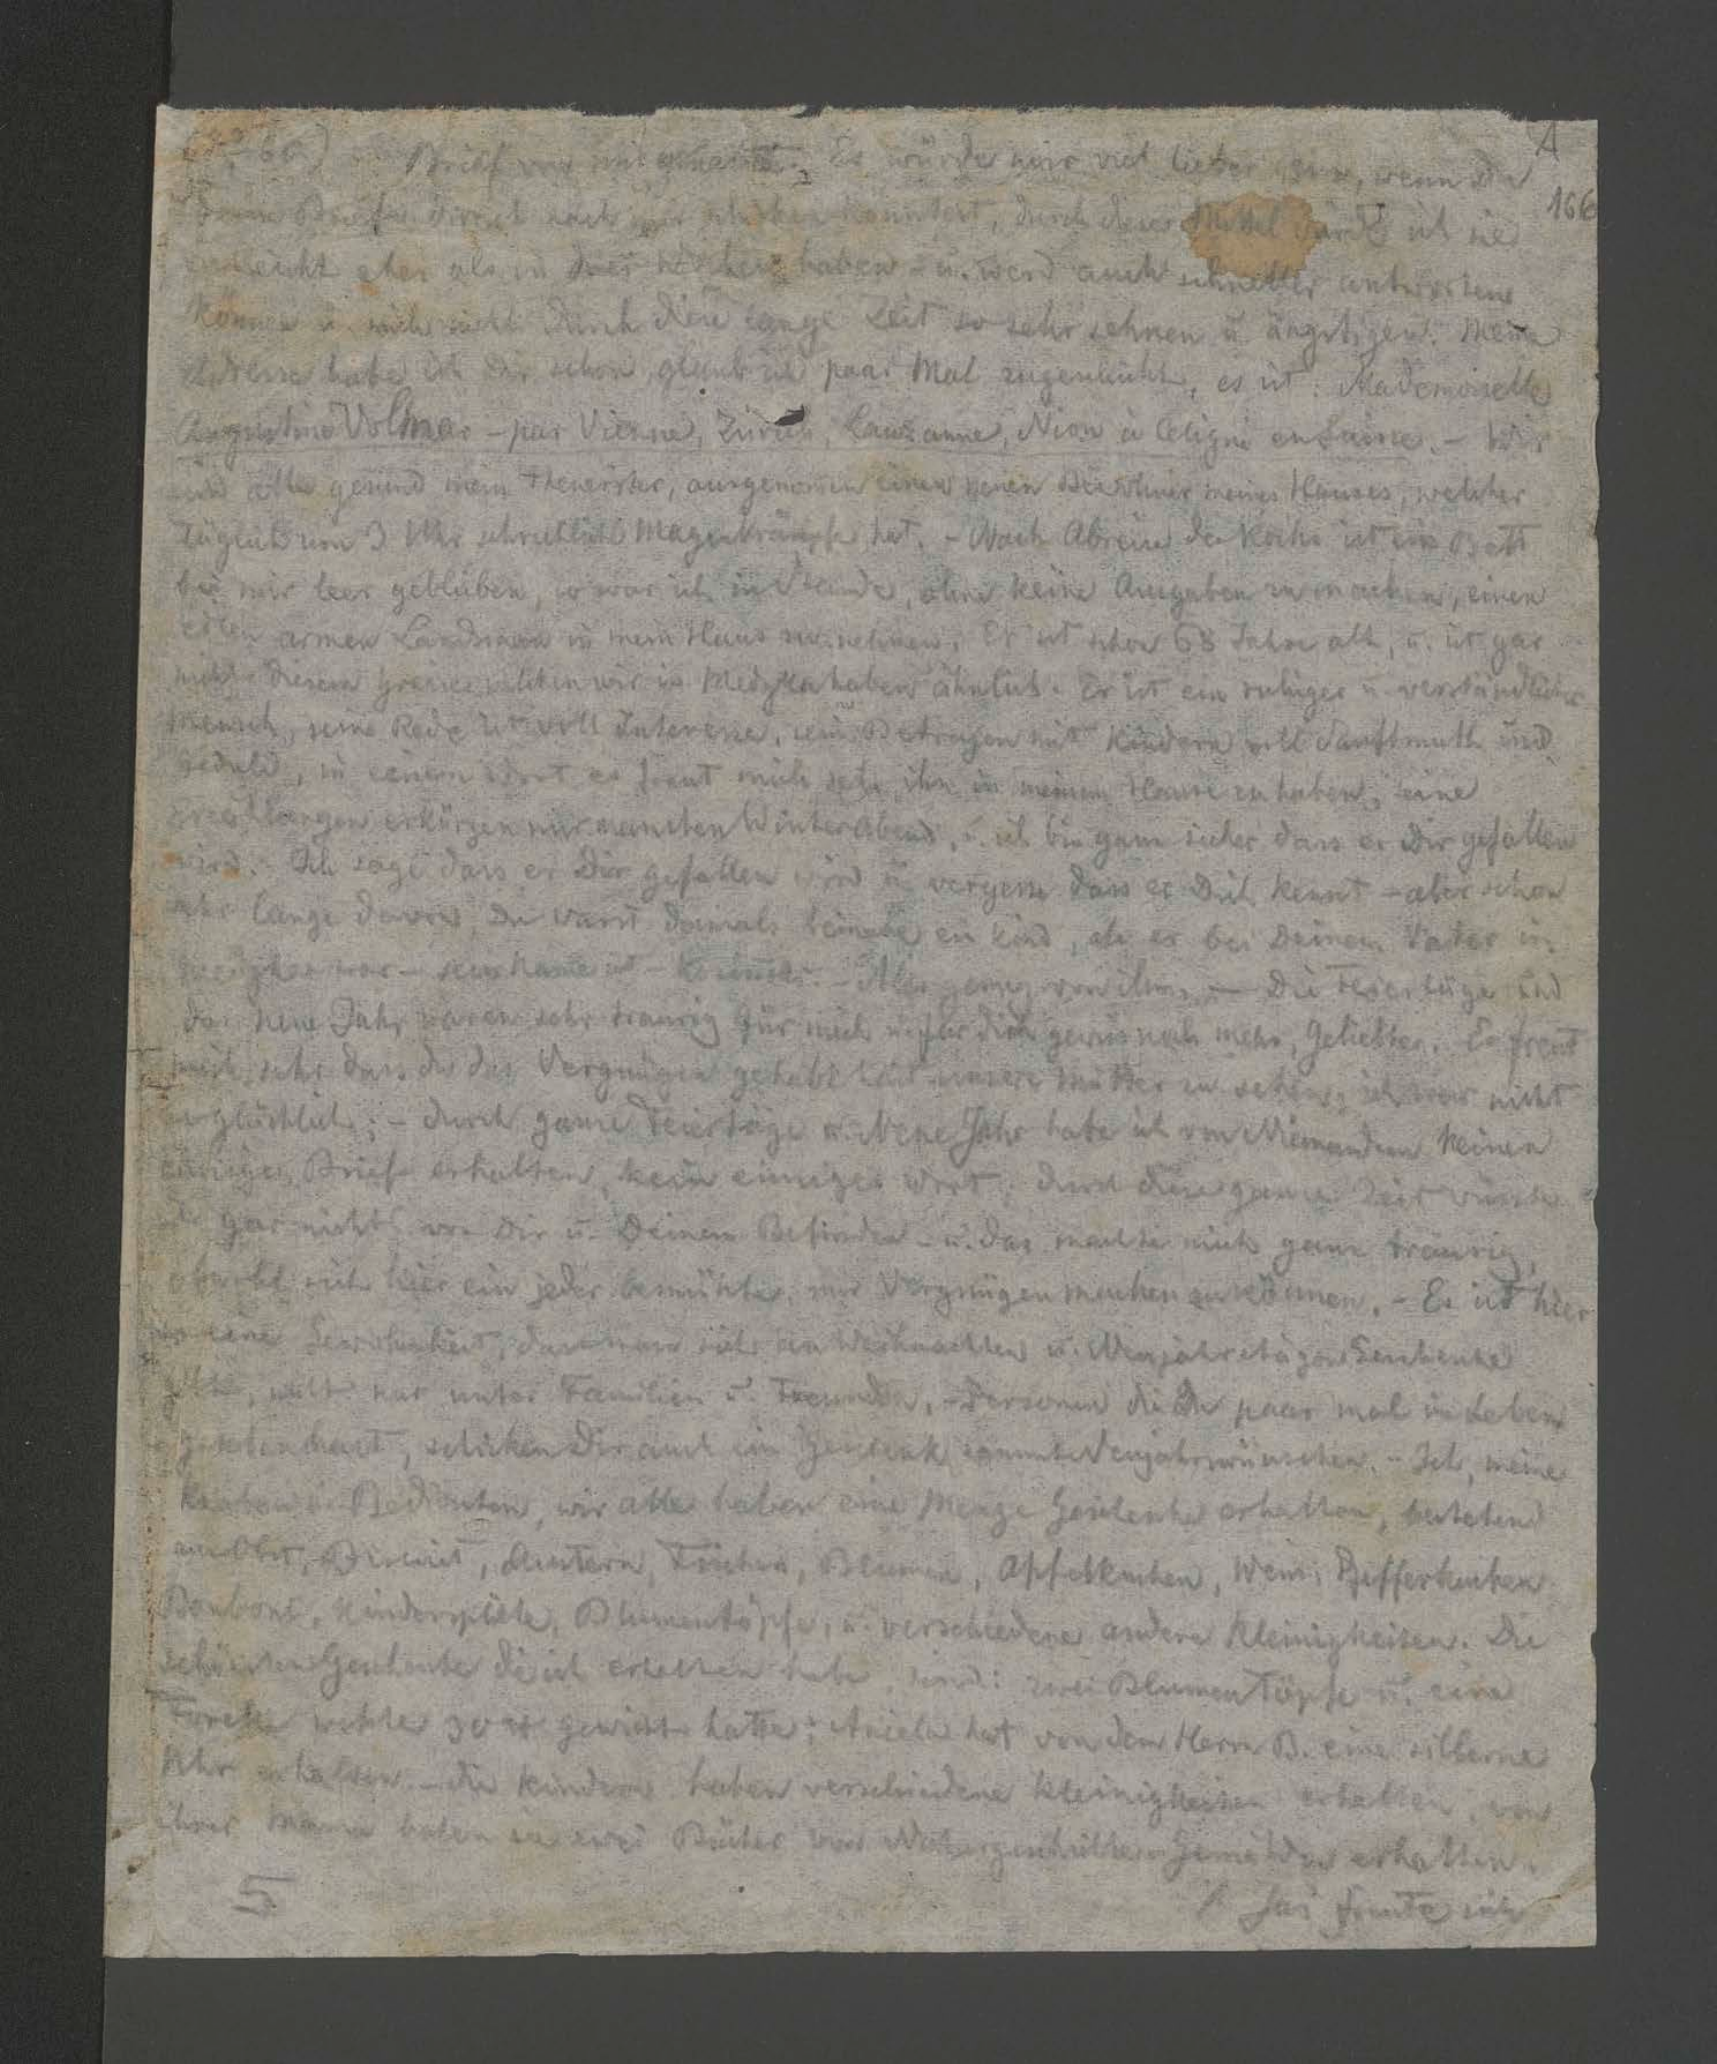 A
Brief von mir erhalten. Es würde mir viel lieber sein, wenn Du
166
deine Briefe direct nach mir schicken konntest, durch dieses Mittel würde ich sie
vielleicht eher als in drei Wochen haben u. werd auch schneller antworten
können u. mich nicht durch diese lange Zeit so sehr sehnen u. ängstigen. Meine
Adresse habe ich Dir schon, glaub ich paar Mal zugeschickt, es ist: Mademoiselle
Augustine Volmar – par Vienne, Zürich, Lausanne, Nion à Celigni en Suisse. – Wir
sind alle gesund mein Theuerster, ausgenommen einen neuen Bewohner meines Hauses, welcher
täglich um 3 Uhr schrecklich Magenkrämpfe hat. – Nach Abreise der Kochs ist ein Bett
bei mir leer geblieben, so war ich im Stande, ohne keine Ausgaben zu machen, einen
armen Landsmann in mein Haus zu nehmen. Er ist schon 68 Jahre alt, u. ist gar
nicht diesem Greise welchen wir in Medyka haben ähnlich. Er ist ein ruhiger u. verständlicher
Mensch, seine Rede ist voll Interesse, sein Betragen mit Kindern voll Sanftmuth und
Geduld, in einem Wort es freut mich sehr ihn in meinem Hause zu haben; seine
Erzählungen erkürzen mir manchen Winterabend, u. ich bin ganz sicher dass er Dir gefallen
wird. – Ich sage dass er Dir gefallen wird u. vergesse dass er Dich kennt – aber schon
sehr lange davon, Du warst damals beinahe ein Kind, als er bei Deinem Vater in
war – sein Name ist – – Aber genug von ihm. – Die Feiertäge und
das neue Jahr waren sehr traurig für mich u. für Dich gewiss noch mehr, Geliebter. Es freut
mich sehr dass du das Vergnügen gehabt hast unsere Mutter zu sehen; ich war nicht
so glücklich; – durch ganze Feiertäge u. Neue Jahr habe ich von Niemandem keinen
einzigen Brief erhalten, kein einziges Wort; durch diese ganze Zeit wusste
ich gar nichts von Dir u. Deinem Befinden – u. das machte mich ganz traurig,
obwohl sich hier ein jeder bemühte, mir Vergnügen machen zu können. – Es ist hier
so eine Gewohnheit, dass man sich an Weihnachten u. Neujahrstägen Geschenke
nicht nur unter Familien u. Freunden, – Personen die Du paar mal im Leben
gesehen hast, schicken Dir auch ein Geschenk sammt Neujahrswünschen. – Ich, meine
Knaben u. Bedienten, wir alle haben eine Menge Geschenke erhalten, bestehend
aus Obst, Biscuit, Austern, Fischen, Blumen, Apfelkuchen, Wein, Pfefferkuchen
Bonbons, Kinderspiele, Blumentöpfe, u. verschiedene andere Kleinigkeiten. Die
schönsten Geschenke die ich erhalten habe, sind: zwei Blumentöpfe u. eine
Forelle welche 30 ℔ gewicht hatte; Aniela hat von dem Herrn B. eine silberne
Uhr erhalten. – Die Kindern haben verschiedene Kleinigkeiten erhalten, von
ihrer Mama haben sie zwei Bücher von Naturgeschichte Gemälden erhalten.
Jas freute sich
5